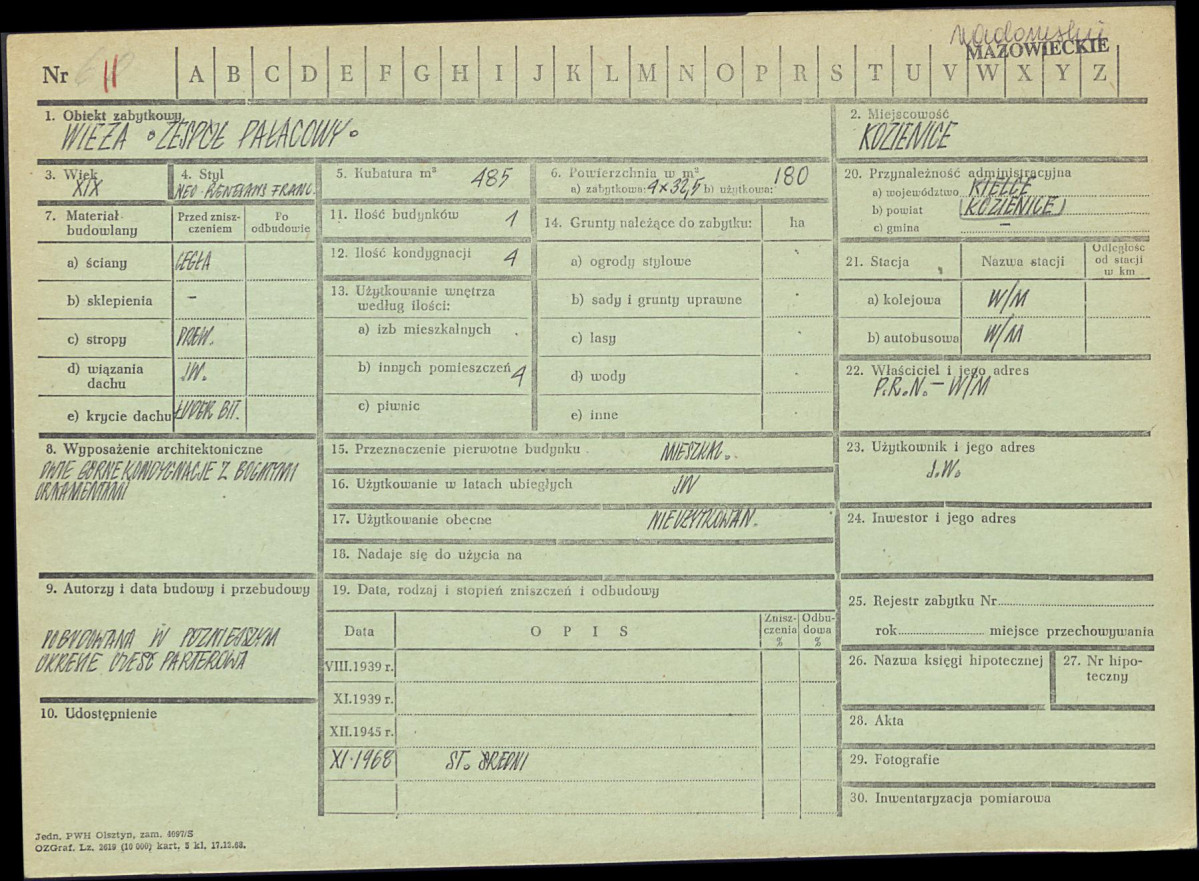 radomskie
MAZOWIECKIE
Nr 11 A B C D E F G H I J K L M N O P R S T U V W X Y Z
1. Obiekt zabytkowy
WIEŻA "ZESPÓŁ PAŁACOWY"
2. Miejscowość
KOZIENICE
3. Wiek
XIX
4. Styl
NEO RENESANS FRANC.
5. Kubatura m³ 485
6. Powierzchnia w m²
a) zabytkowa: 4×32,5 b) użytkowa: 180
20. Przynależność administracyjna
a) województwo KIELCE
b) powiat (KOZIENICE)
c) gmina —
7. Materiał budowlany
Przed zniszczeniem
Po odbudowie
a) ściany CEGŁA
b) sklepienia –
c) stropy DREW.
d) wiązania dachu JW.
e) krycie dachu ŁUPEK BIT.
11. Ilość budynków 1
12. Ilość kondygnacji 4
13. Użytkowanie wnętrza według ilości:
a) izb mieszkalnych
b) innych pomieszczeń 4
c) piwnic
14. Grunty należące do zabytku: ha
a) ogrody stylowe
b) sady i grunty uprawne
c) lasy
d) wody
e) inne
21. Stacja
Nazwa stacji
Odległość od stacji w km
a) kolejowa W/M
b) autobusowa W/M
22. Właściciel i jego adres
P.R.N. – W/M
8. Wyposażenie architektoniczne
DWIE GÓRNE KONDYGNACJE Z BOGATYMI
ORNAMENTAMI
15. Przeznaczenie pierwotne budynku MIESZKAL.
16. Użytkowanie w latach ubiegłych JW
17. Użytkowanie obecne NIEUŻYTKOWAN.
18. Nadaje się do użycia na
23. Użytkownik i jego adres
J.W.
24. Inwestor i jego adres
9. Autorzy i data budowy i przebudowy
DOBUDOWANA W PÓŹNIEJSZYM
OKRESIE CZĘŚĆ PARTEROWA
10. Udostępnienie
19. Data, rodzaj i stopień zniszczeń i odbudowy
Data
O P I S
Zniszczenia %
Odbudowa %
VIII.1939 r.
XI.1939 r.
XII.1945 r.
XI.1968 ST. ŚREDNI
25. Rejestr zabytku Nr
rok miejsce przechowywania
26. Nazwa księgi hipotecznej
27. Nr hipoteczny
28. Akta
29. Fotografie
30. Inwentaryzacja pomiarowa
Jedn. PWH Olsztyn, zam. 4097/S
OZGraf. Lz. 2619 (10 000) kart, 5 kl, 17.12.68.